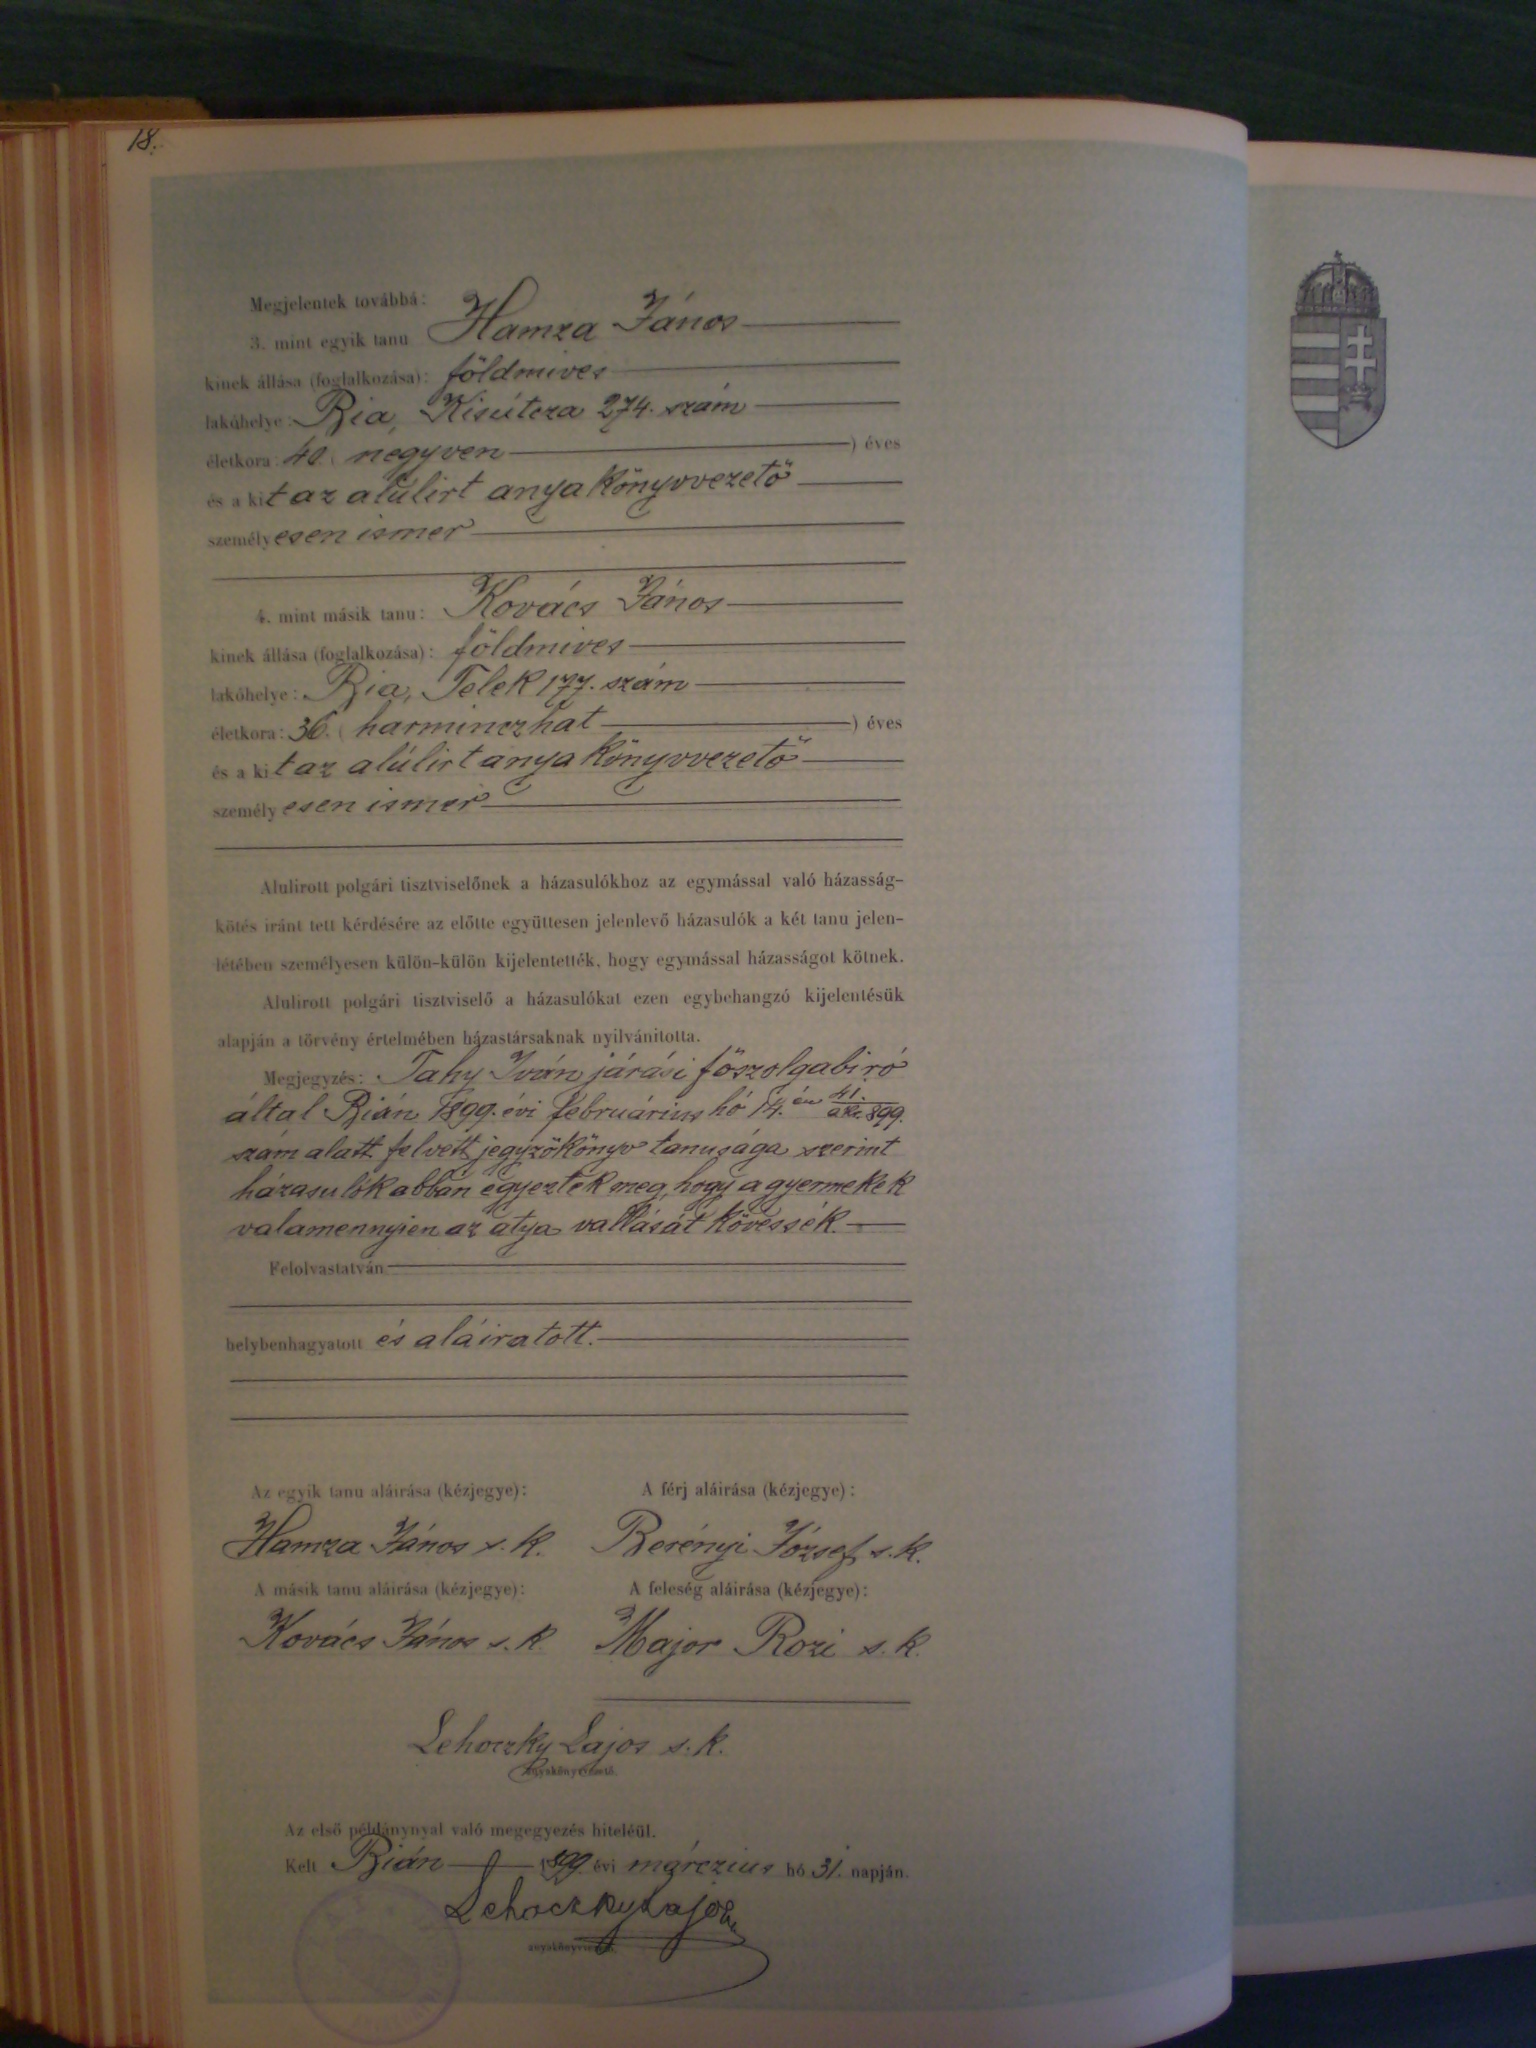 18.
Megjelentek továbbá:
3. mint egyik tanu Hamza János
kinek állása (foglalkozása): földmives
lakóhelye: Bia, Kisútcza 274. szám
életkora: 40. ( negyven ) éves
és a kit az alúlirt anyakönyvvezető
személyesen ismer
4. mint másik tanu: Kovács János
kinek állása (foglalkozása): földmives
lakóhelye: Bia, Telek 177. szám
életkora: 36. ( harminczhat ) éves
és a kit az alúlirt anyakönyvvezető
személyesen ismer
Alulirott polgári tisztviselőnek a házasulókhoz az egymással való házasság-
kötés iránt tett kérdésére az előtte együttesen jelenlevő házasulók a két tanu jelen-
létében személyesen külön-külön kijelentették, hogy egymással házasságot kötnek.
Alulirott polgári tisztviselő a házasulókat ezen egybehangzó kijelentésük
alapján a törvény értelmében házastársaknak nyilvánitotta.
Megjegyzés: Tahy Iván járási főszolgabiró
által Bián 1899. évi februárius hó 14.én 41./ak. 899.
szám alatt felvett jegyzőkönyv tanusága szerint
házasulók abban egyeztek meg, hogy a gyermekek
valamennyien az atya vallását kövessék.
Felolvastatván
helybenhagyatott és aláiratott.
Az egyik tanu aláirása (kézjegye): A férj aláirása (kézjegye):
Hamza János s. k. Berényi József s. k.
A másik tanu aláirása (kézjegye): A feleség aláirása (kézjegye):
Kovács János s. k. Major Rozi s. k.
Lehoczky Lajos s. k.
anyakönyvvezető.
Az első példánynyal való megegyezés hiteléül.
Kelt Bián 1899. évi márczius hó 31. napján.
Lehoczky Lajos
anyakönyvvezető.